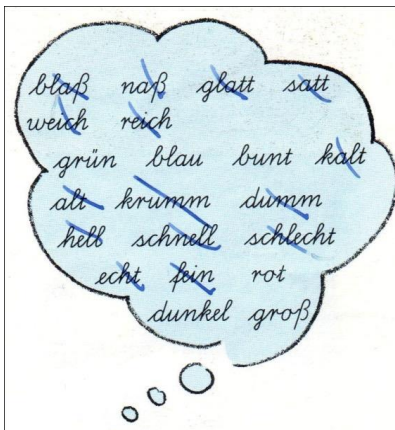 blaß naß glatt satt
weich reich
grün blau bunt kalt
alt krumm dumm
hell schnell schlecht
echt fein rot
dunkel groß